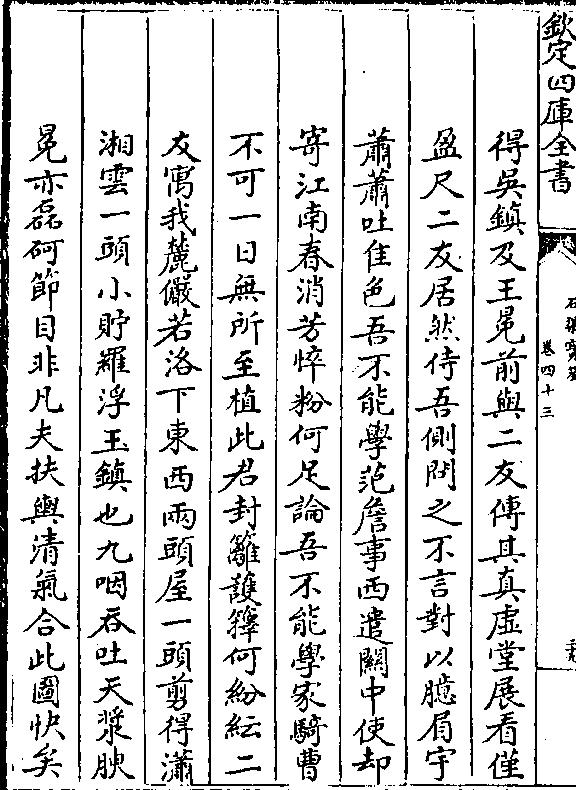 欽定四庫全書
卷四十三
得吳鎮及王冕前與二友傳其真虛堂展看僅
盈尺二友居然侍吾側問之不言對以臆眉宇
蕭蕭吐佳色吾不能學范詹事西遣關中使却
寄江南春消芳悴粉何足論吾不能學家騎曹
不可一日無所至植此君封籬護籜何紛紜二
友寓我麓儼若洛下東西兩頭屋一頭剪得瀟
湘雲一頭小貯羅浮玉鎮也九咽吞吐天漿腴
冕亦磊砢節目非凡夫扶輿清氣合此圖快矣